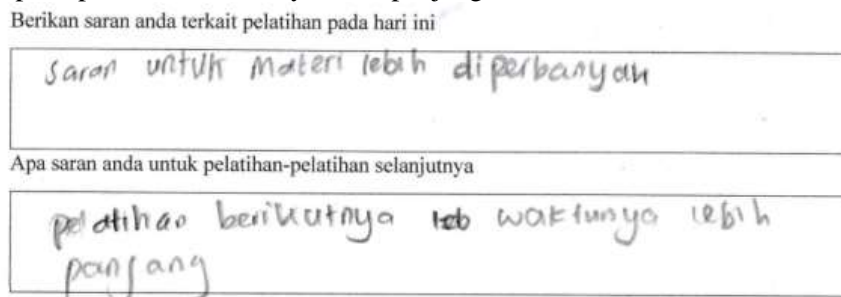 Berikan saran anda terkait pelatihan pada hari ini
Saran untuk materi lebih diperbanyak
Apa saran anda untuk pelatihan-pelatihan selanjutnya
pelatihan berikutnya leb waktunya lebih
panjang